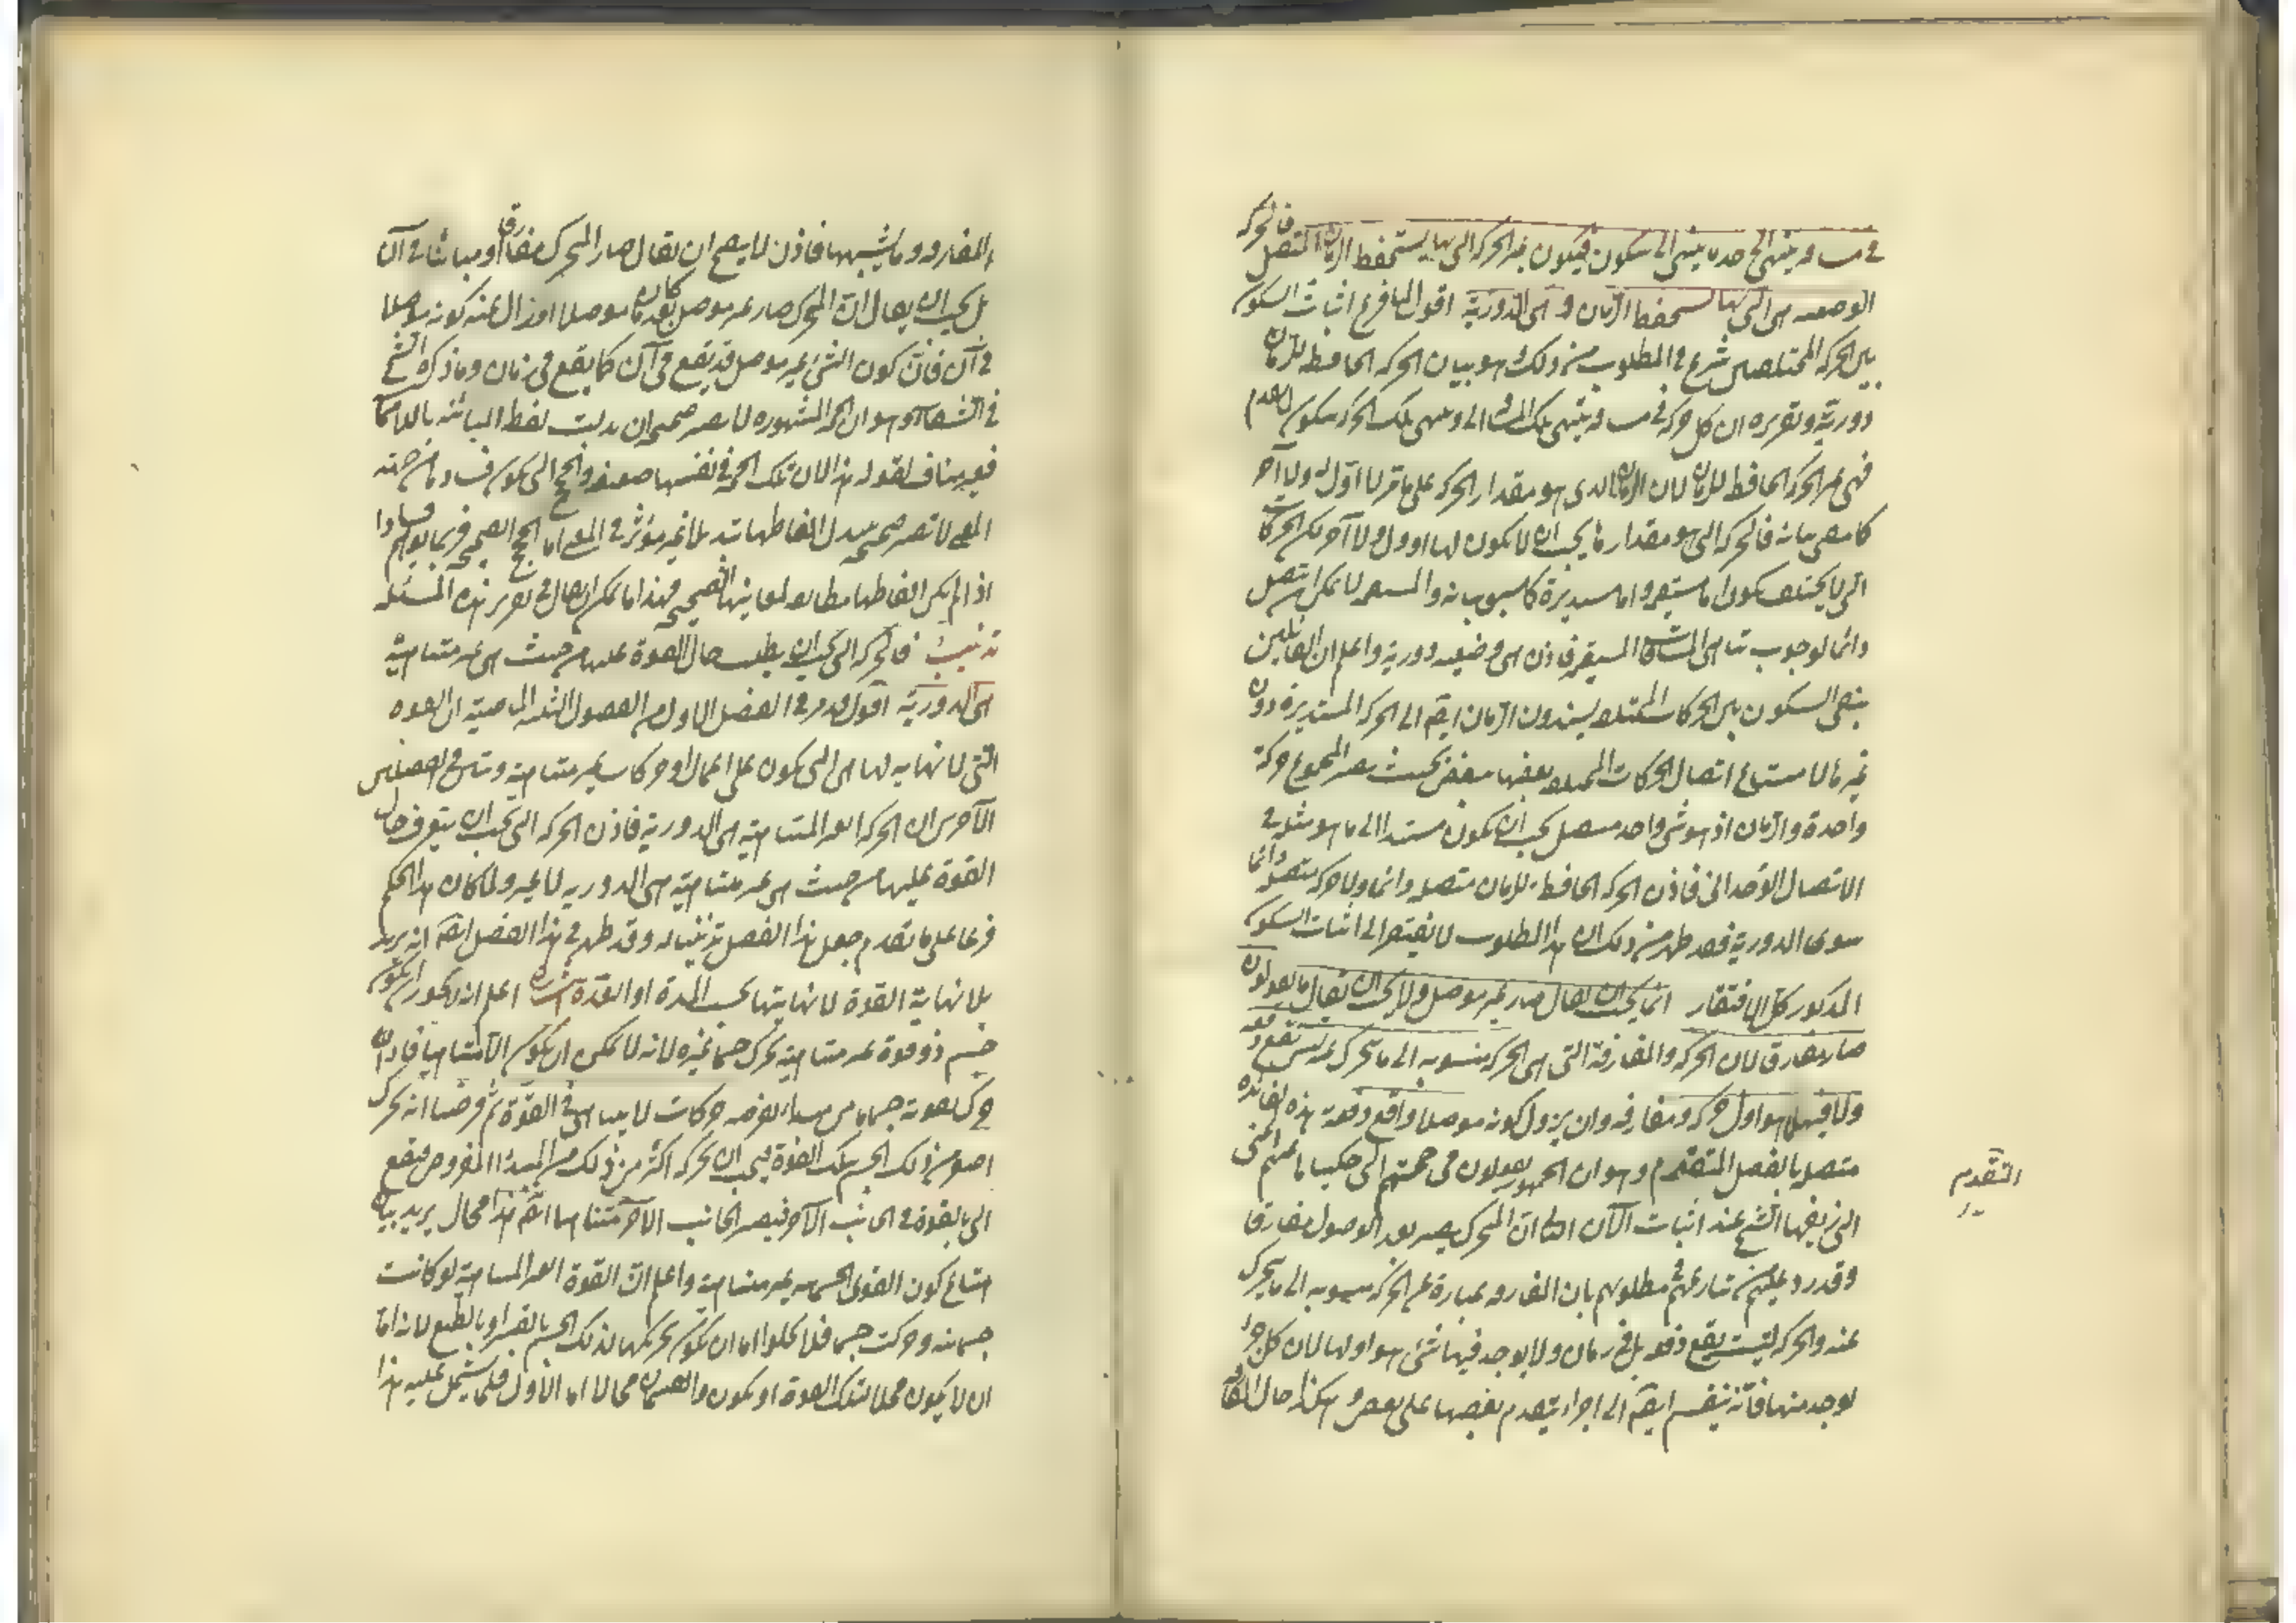 في مسافة ينتهي الى حد ما ينتهي الى سكون فيكون غير الحركة التي بها يستحفظ الزمان المتصل فالحركة
الوضعية هي التي بها يستحفظ الزمان وهي الدورية اقول لما فرغ اثبات السكون
بين الحركتين المختلفتين شرع في المطلوب من ذلك وهو بيان الحركة الحافظة للزمان
دورية وتقريره ان كل حركة في مسافة ينتهي تلك المسافة الى وينتهي تلك الحركة بسكون
فهي غير الحركة الحافظة للزمان لان الزمان الذي هو مقدار الحركة على ما مر لا اول له ولا آخر
كما مضى بيانه فالحركة التي هو مقدارها يجب ان لا يكون لها اول ولا آخر لكن الحركات
التي لا يختلف يكون اما مستقيمة واما مستديرة كما سبق بيانه والمستقيمة لا يمكن ان يتصل
دائما لوجوب تناهي المسافة المستقيمة فاذن هي وضعية دورية واعلم ان القائلين
بنفي السكون بين الحركات المختلفة يسندون الزمان ايضا الى الحركة المستديرة دون
غيرها لامتناع اتصال الحركات المختلفة بعضها ببعض بحيث يصير المجموع حركة
واحدة والزمان اذ هو شيء واحد متصل يجب ان يكون مستندا الى ما هو مثله في
الاتصال الوحداني فاذن الحركة الحافظة للزمان متصلة دائما ولا حركة متصلة دائما
سوى الدورية فقد ظهر من ذلك ان هذا المطلوب لا يفتقر الى اثبات السكون
المذكور كل الافتقار انما يجب ان يقال صار غير موصل ولا يجب ان يقال ما يقولون
صار مفارقا لان الحركة والمفارقة التي هي الحركة منسوبة الى ما يتحرك عنه ليس يقع دفعة
ولا فيهما ما هو اول حركة ومفارقة وان يزول كونه موصلا واقع دفعة هذه لفائدة
متصل بالفصل المتقدم وهو ان الجمهور يقولون في حجتهم التي حكيناها عنهم
التي زيفها الشيخ عند اثبات الآن الثاني ان المتحرك يصير بعد الوصول مفارقا
وقد رد عليهم من تنازعهم في مطلوبهم بان المفارقة عبارة عن الحركة منسوبة الى ما يتحرك
عنه والحركة ليست يقع دفعة بل في زمان ولا يوجد فيها شيء هو اولها لان كل جزء
يوجد منها فانه ينقسم ايضا الى اجزاء يتقدم بعضها على بعض وهكذا حال
التقدم
المفارقة وما يشبهها فاذن لا يصح ان يقال صار المتحرك مفارقا او مباينا في آن
بل يجب ان يقال ان المتحرك صار غير موصل بعد ما كان موصلا او زال عنه كونه موصلا
في آن فان كون الشيء غير موصل قد يقع في آن كما يقع في زمان وما ذكره الشيخ
في الشفاء وهو ان الحجة المشهورة لا يصير صحيحة ان بدلت لفظ المباينة باللامماسة
فغير مناف لقوله هذا لان تلك الحجة في نفسها ضعيفة والحجج التي يكون فسادها من جهة
المعنى لا تصير صحيحة بتبديل الفاظها تبديلا غير مؤثر في المعنى اما الحجج الصحيحة فربما يوهم فسادا
اذا لم يكن الفاظها مطابقة لمعانيها الصحيحة فهذا ما يمكن ان يقال في تقرير هذه المسئلة
تذنيب فالحركة التي يجب ان يطلب حال القوة عليها من حيث هي غير متناهية
هي الدورية اقول قد مر في الفصل الاول من الفصول الثلثة الماضية ان القوة
التي لا نهاية لها هي التي يكون على اعمال او حركات غير متناهية وتبين في الفصلين
الآخرين ان الحركة الغير المتناهية هي الدورية فاذن الحركة التي يجب ان يتعرف حال
القوة عليها من حيث هي غير متناهية هي الدورية لا غير ولما كان هذا الحكم
فرعا على ما تقدم جعل هذا الفصل تذنيبا له وقد ظهر في هذا الفصل ايضا انه يريد
بلا نهاية القوة لا نهايتها بحسب المدة او العدة اشارة اعلم انه لا يجوز ان يكون
جسم ذو قوة غير متناهية يحرك جسما غيره لانه لا يمكن ان يكون الا متناهيا فاذا
حرك بقوته جسما ما من مبدأ نفرضه حركات لا يتناهى في القوة ثم فرضنا انه يحرك
اصغر من ذلك الجسم بتلك القوة فيجب ان يحركه اكثر من ذلك من المبدأ المفروض فيقع
التي بالقوة في الجانب الآخر فيصير الجانب الآخر متناهيا ايضا هذا محال يريد بيان
امتناع كون القوى الجسمية غير متناهية واعلم ان القوة الغير المتناهية لو كانت
جسمانية وحركت جسما فلا يخلوا اما ان يكون تحريكها لذلك الجسم بالقسر او بالطبع لانه اما
ان لا يكون محلا لتلك القوة او يكون والقسمان محالان اما الاول فلما يشتمل عليه هذا